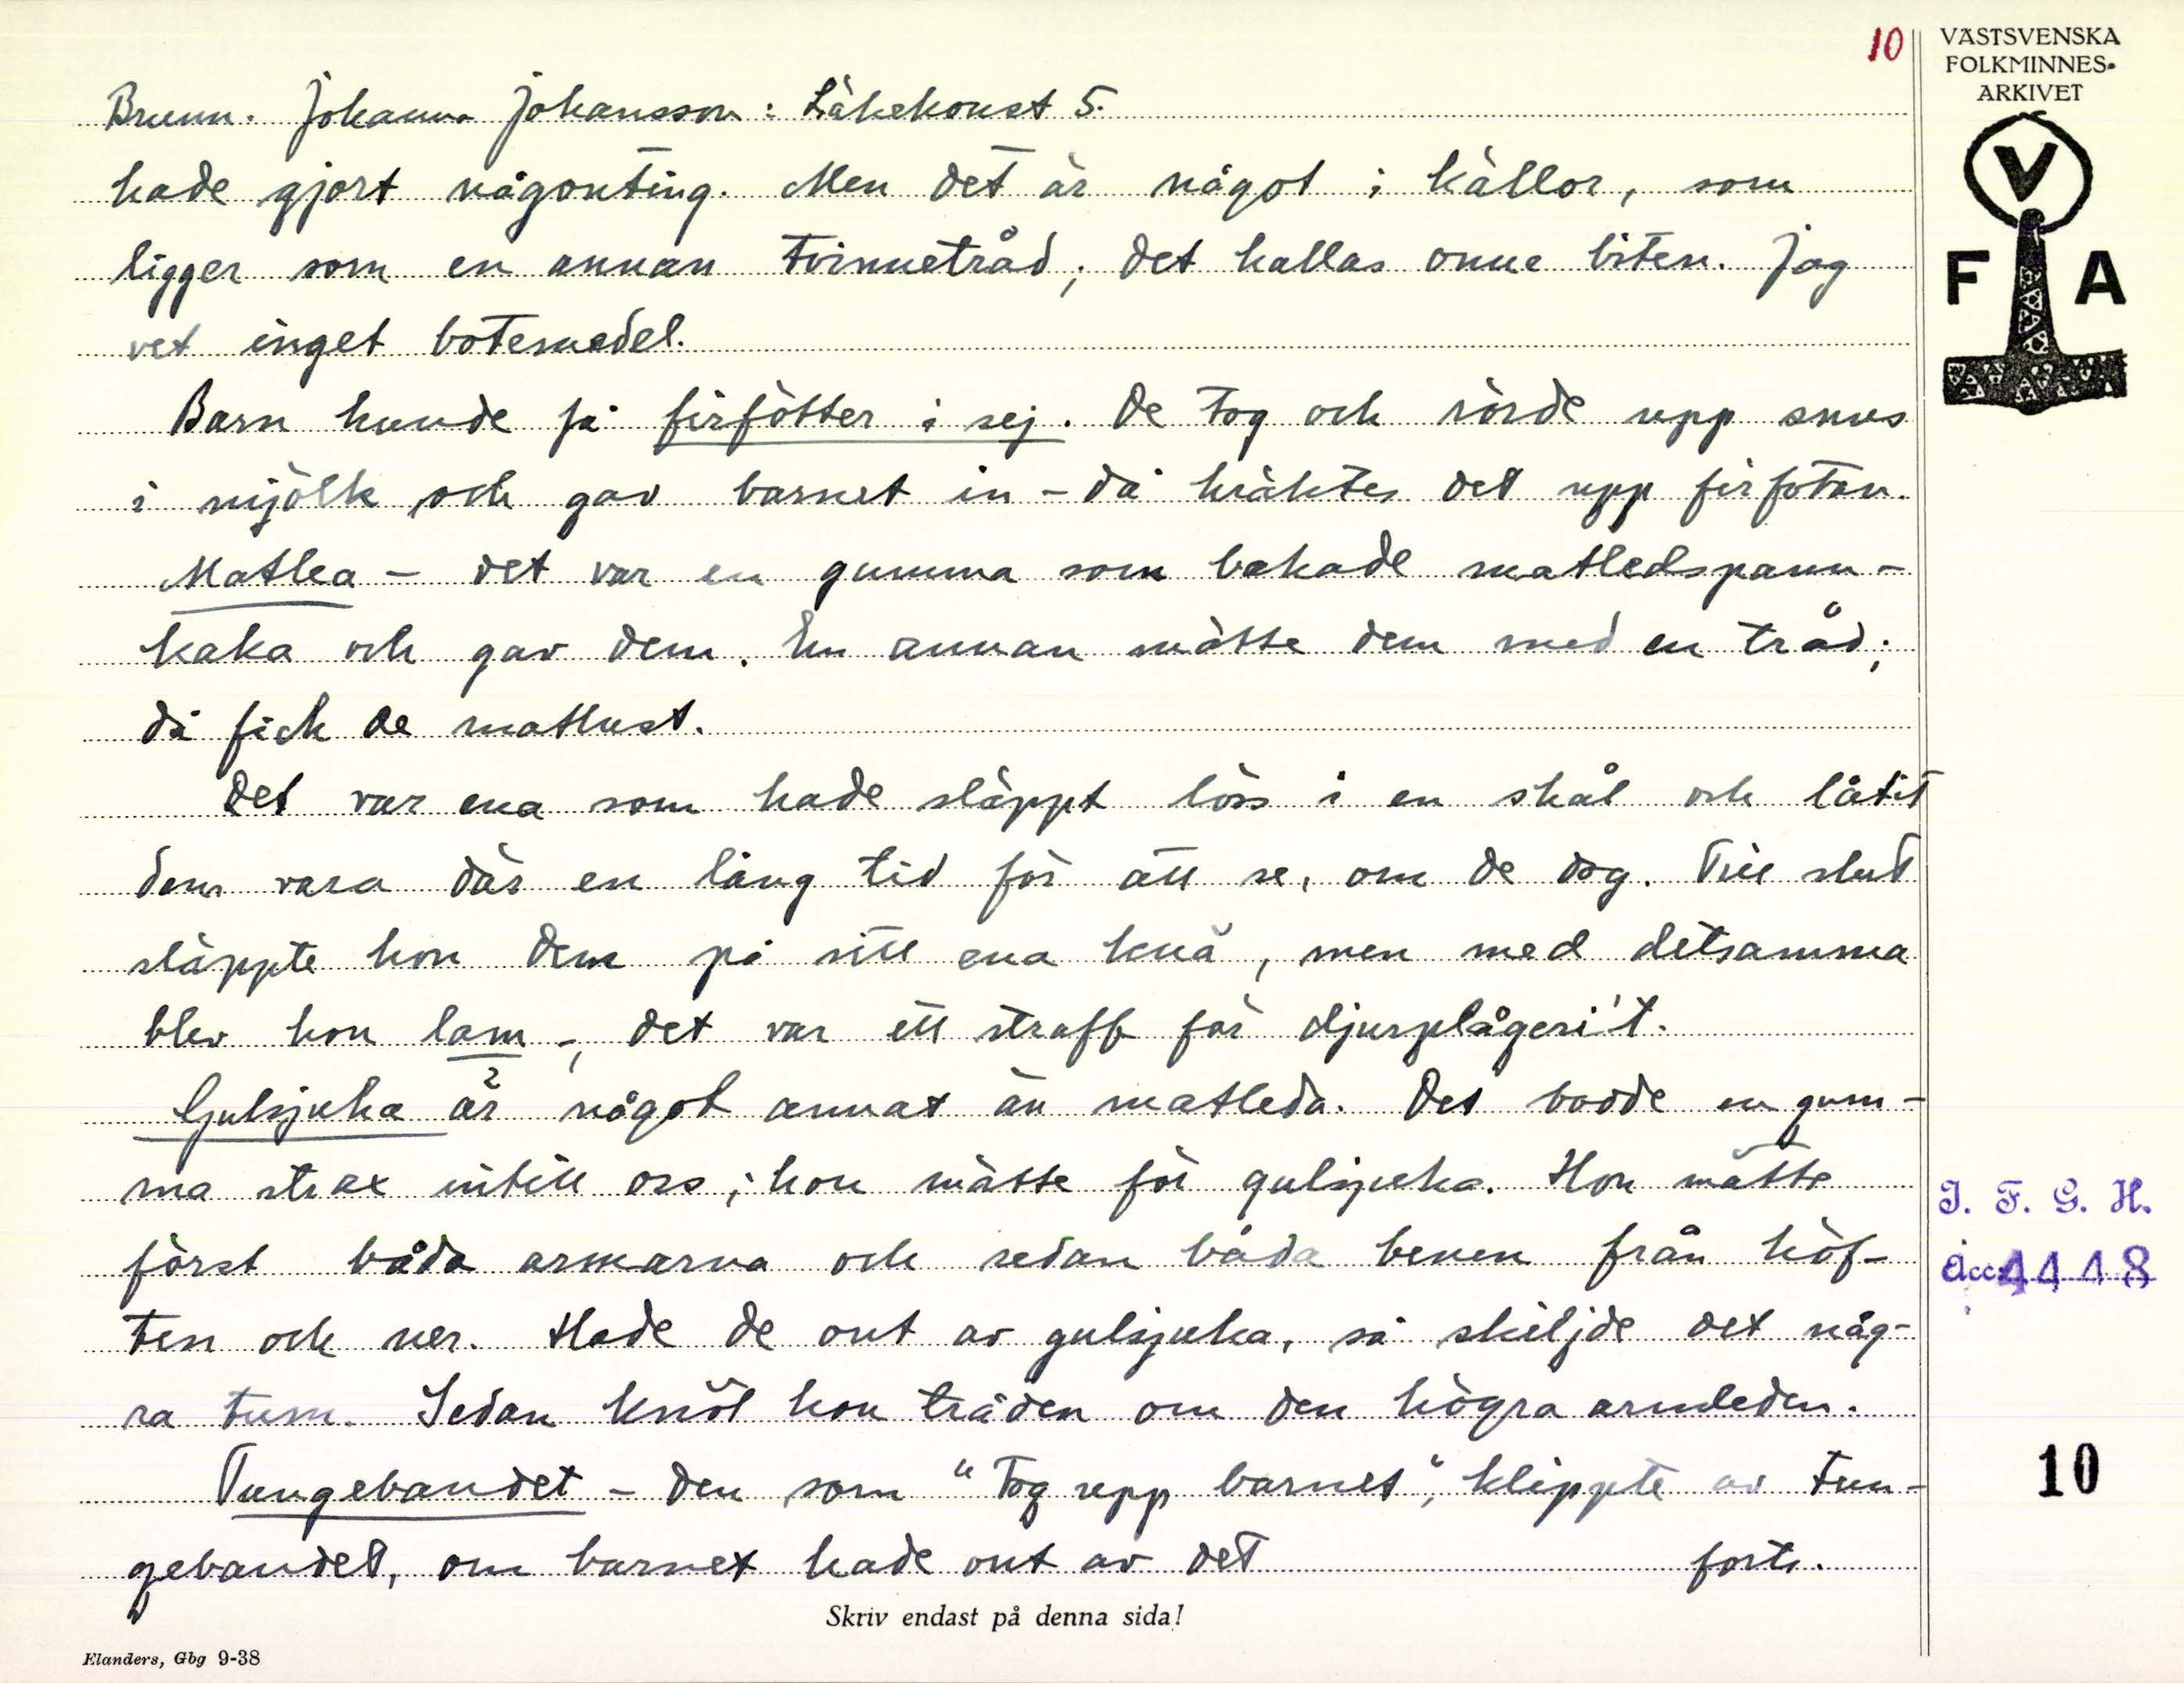 10
VÄSTSVENSKA
FOLKMINNES-
ARKIVET
V
F A
Brunn. Johanna Johansson: Läkekonst 5.
hade gjort någonting. Men det är något i källor, som
ligger som en annan tvinnetråd; det kallas onne biten. Jag
vet inget botemedel.
Barn kunde få firfötter i sej. De tog och rörde upp snus
i mjölk och gav barnet in - då kräktes det upp firfotan.
Matlea - det var en gumma som bakade matledspann-
kaka och gav dem. En annan mätte dem med en tråd;
då fick de matlust.
Det var ena som hade släppt löss i en skål och låtit
dem vara där en lång tid för att se, om de dog. Till slut
släppte hon dem på sitt ena knä, men med detsamma
blev hon lam -, det var ett straff för djurplågeri't.
Gulsjuka är något annat än matleda. Det bodde en gum-
ma strax intill oss; hon mätte för gulsjuka. Hon mätte
först båda armarna och sedan båda benen från höf-
ten och ner. Hade de ont av gulsjuka, så skiljde det någ-
ra tum. Sedan knöt hon tråden om den högra armleden.
Tungebandet - den som "tog upp barnet", klippte av tun-
gebandet, om barnet hade ont av det forts.
I. F. G. H.
Acc. 4418
10
Skriv endast på denna sida!
Elanders, Gbg 9-38